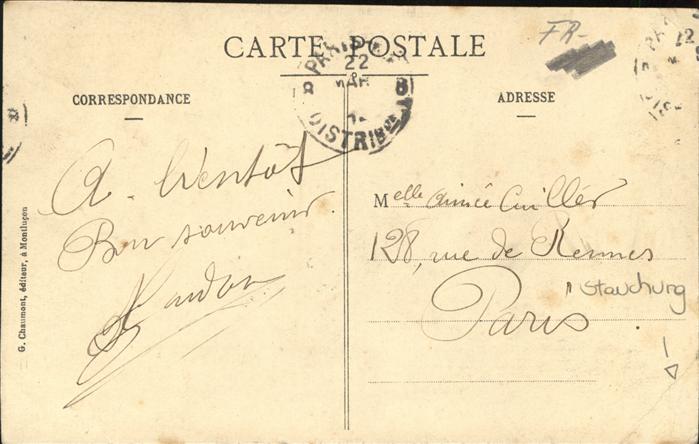 CARTE POSTALE
FR-
PARIS
22
MAR
DISTRIB
CORRESPONDANCE
ADRESSE
A. bientôt
Bon souvenir.
Melle Aimée Cuillér
128, rue de Rennes
Paris
Stauchung
G. Chaumont, éditeur, à Montluçon